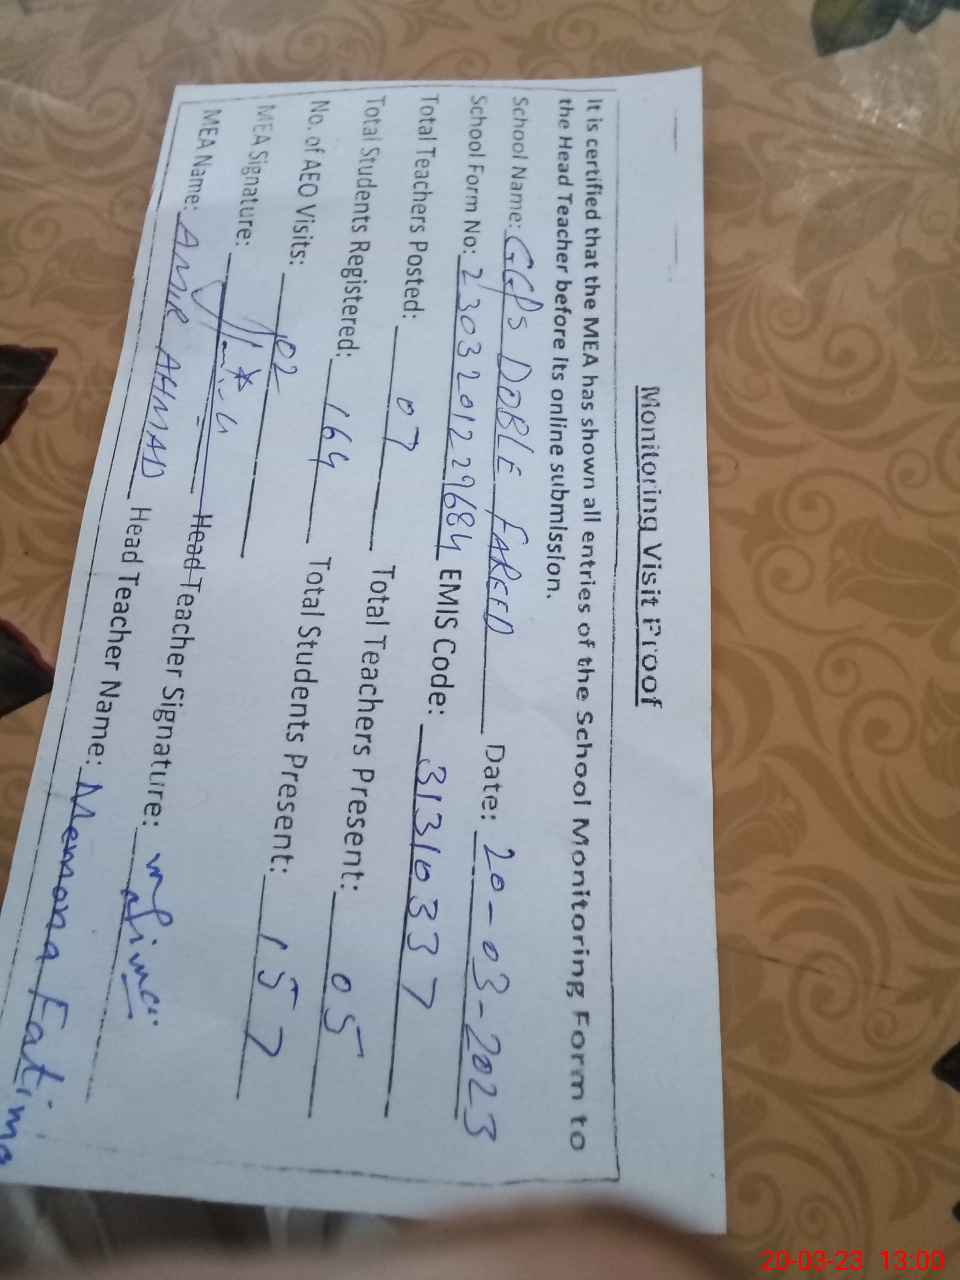 Monitoring Visit Proof
It is certified that the MEA has shown all entries of the School Monitoring Form to
the Head Teacher before its online submission.
School Name: GGPS DOBLE FAREED Date: 20-03-2023
School Form No: 2303201229684 EMIS Code: 31310337
Total Teachers Posted: 07 Total Teachers Present: 05
Total Students Registered: 164 Total Students Present: 157
No. of AEO Visits: 02
MEA Signature: Head Teacher Signature:
MEA Name: AMIR AHMAD Head Teacher Name: Memona Fatima
20-03-23 13:00